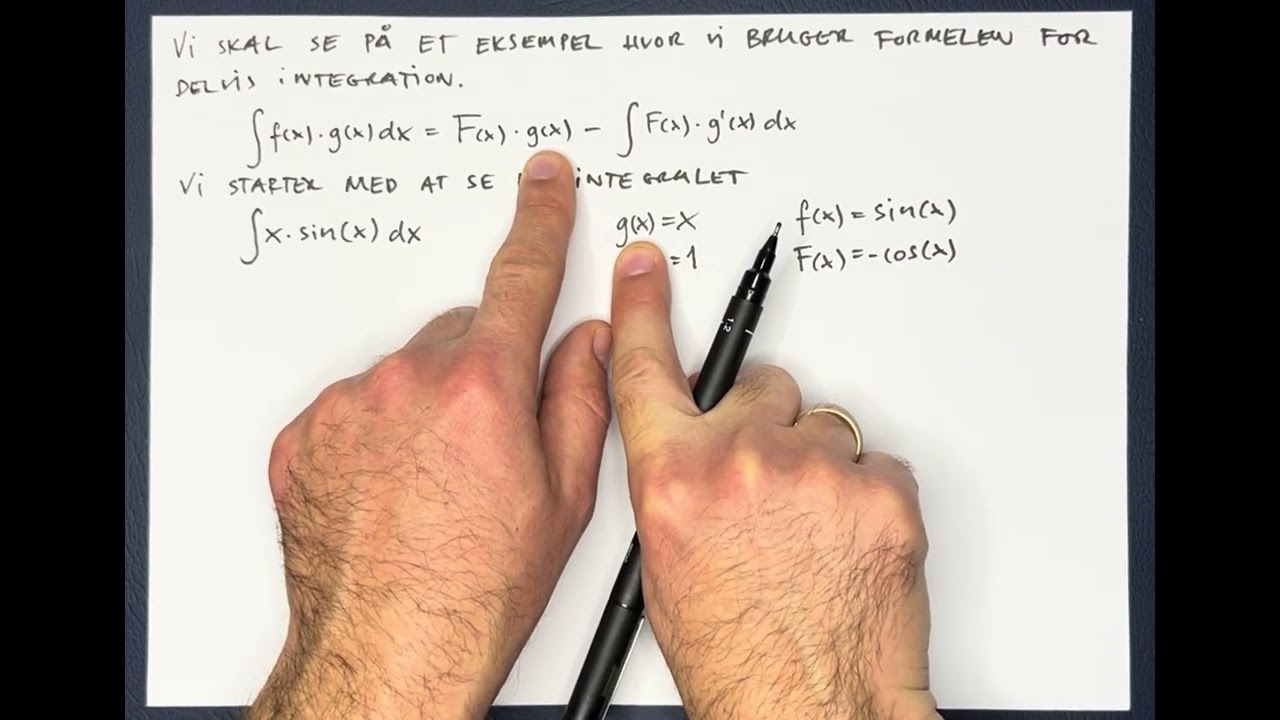 Vi SKAL SE PÅ ET EKSEMPEL HVOR Vi BRUGER FORMELEN FOR
DELVIS iNTEGRATION.
∫f(x)·g(x)dx = F(x)·g(x) − ∫F(x)·g'(x)dx
Vi STARTER MED AT SE iNTEGRALET
∫x·sin(x)dx g(x)=x f(x)=sin(x)
=1 F(x)=-cos(x)
1.2